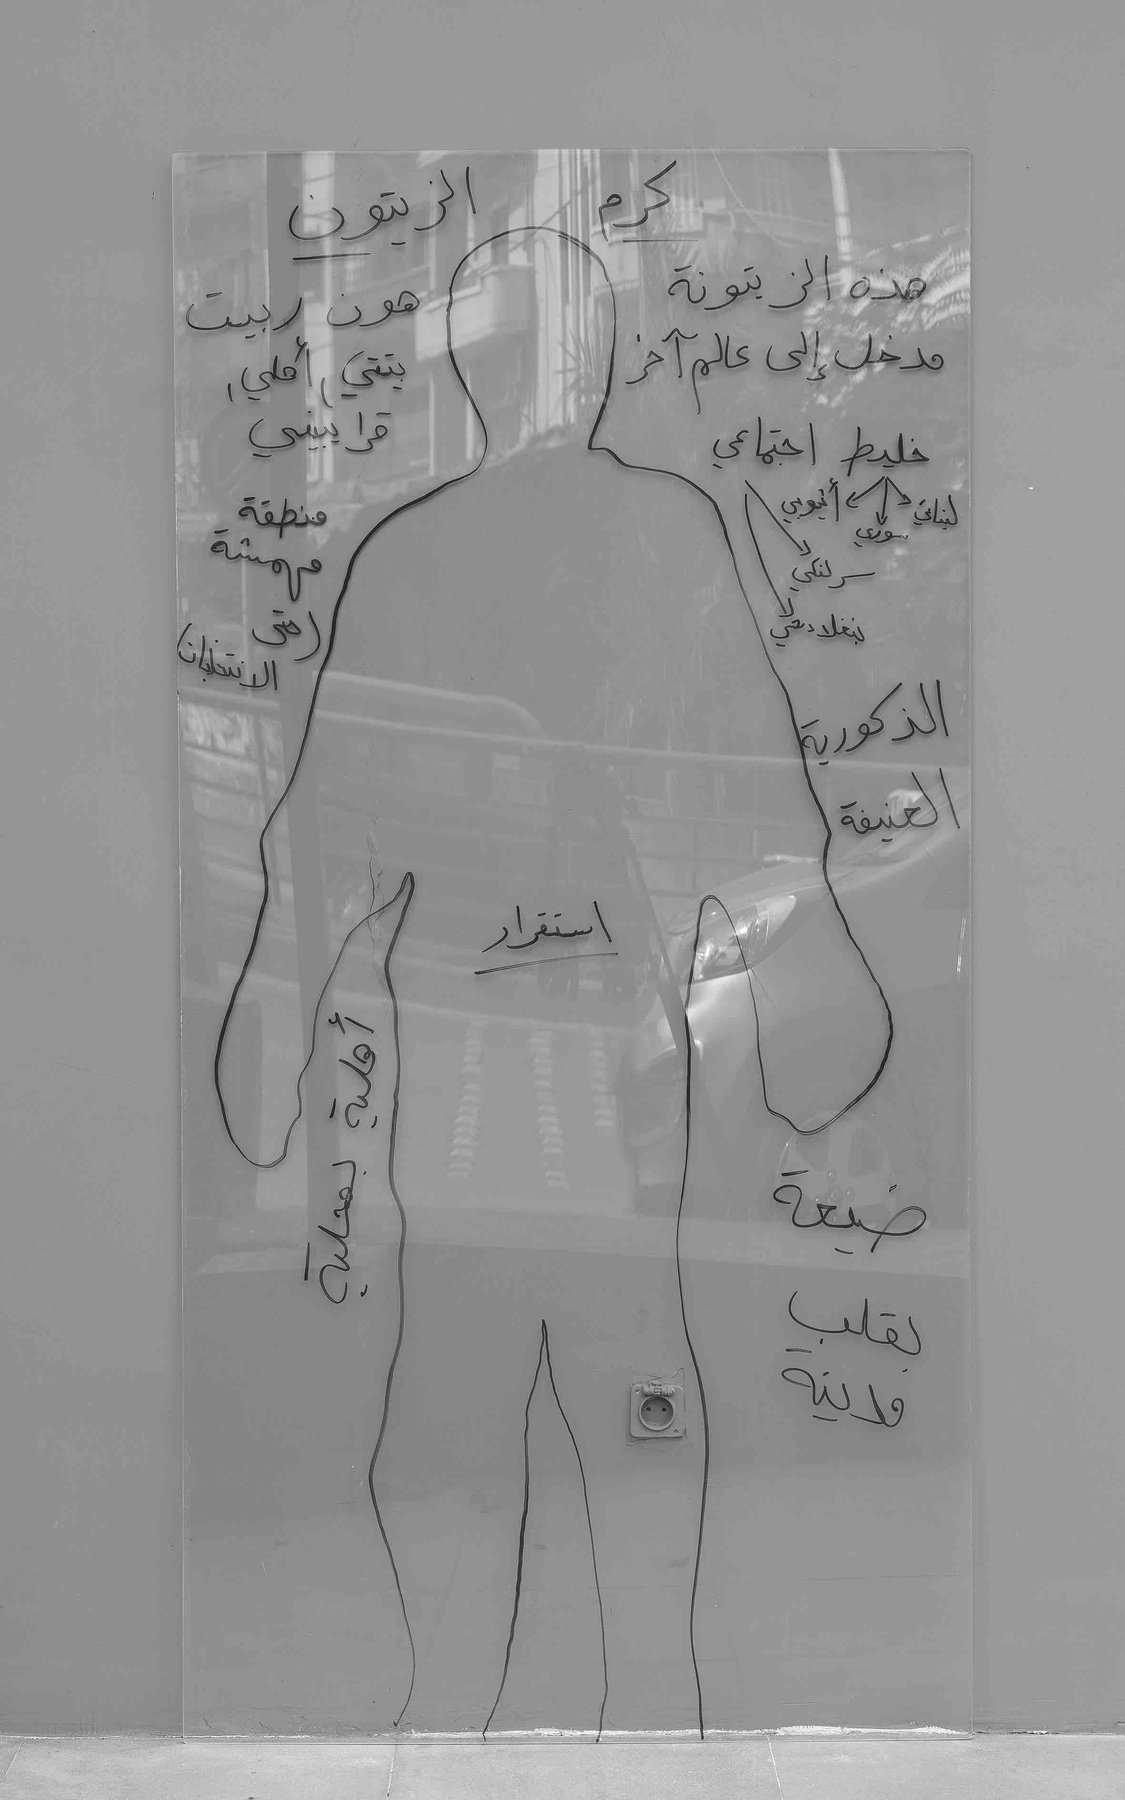 كرم الزيتون
هذه الزيتونة
مدخل إلى عالم آخر
خليط اجتماعي
لبناني
سوري
أثيوبي
سرلنكي
بنغلادشي
الذكورية
العنيفة
ضيعة
بقلب
مدينة
هون ربيت
بنتي، أهلي،
قرايبيني
منطقة
مهمشة
(حتى
الانتخابات)
استقرار
أهلية بمحلية